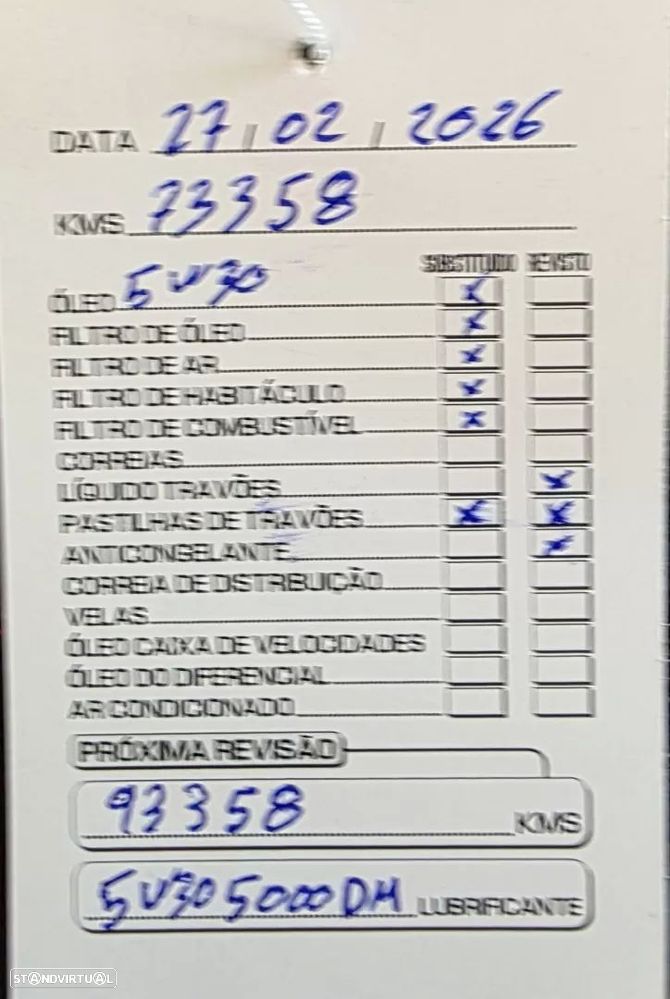 DATA 27 / 02 / 2026
KMS 73358
SUBSTITUIDO REVISTO
ÓLEO 5W30 x
FILTRO DE ÓLEO x
FILTRO DE AR x
FILTRO DE HABITÁCULO x
FILTRO DE COMBUSTÍVEL x
CORREIAS
LÍQUIDO TRAVÕES x
PASTILHAS DE TRAVÕES x x
ANTICONGELANTE x
CORREIA DE DISTRIBUIÇÃO
VELAS
ÓLEO CAIXA DE VELOCIDADES
ÓLEO DO DIFERENCIAL
AR CONDICIONADO
PRÓXIMA REVISÃO
93358 KMS
5W30 5000 DH LUBRIFICANTE
STANDVIRTUAL